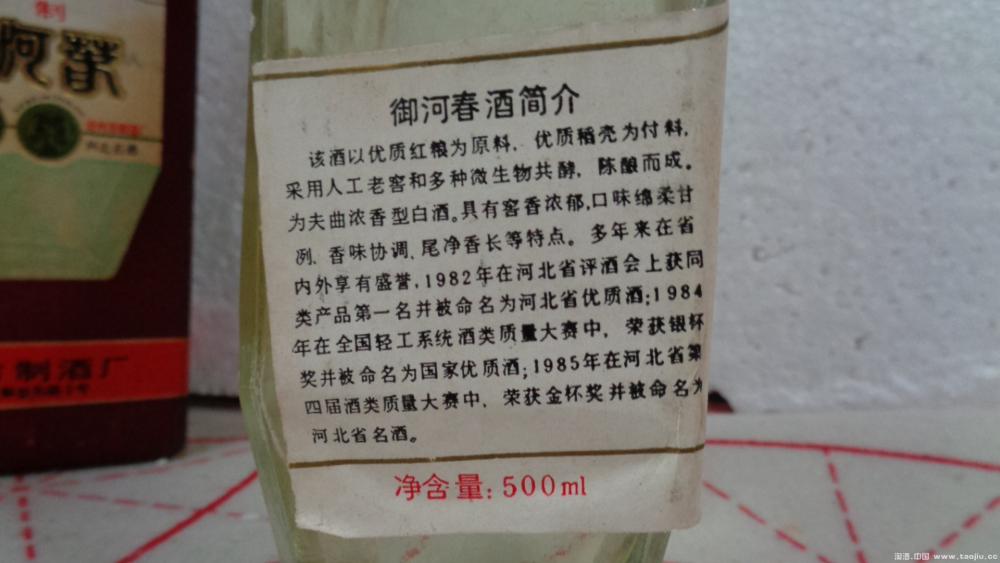 制
河春
制酒厂
御河春酒简介
该酒以优质红粮为原料，优质稻壳为付料，
采用人工老窖和多种微生物共酵，陈酿而成。
为夫曲浓香型白酒。具有窖香浓郁,口味绵柔甘
冽、香味协调、尾净香长等特点。多年来在省
内外享有盛誉，1982年在河北省评酒会上获同
类产品第一名并被命名为河北省优质酒;1984
年在全国轻工系统酒类质量大赛中，荣获银杯
奖并被命名为国家优质酒;1985年在河北省第
四届酒类质量大赛中，荣获金杯奖并被命名为
河北省名酒。
净含量:500ml
淘酒.中国 www.taojiu.cc